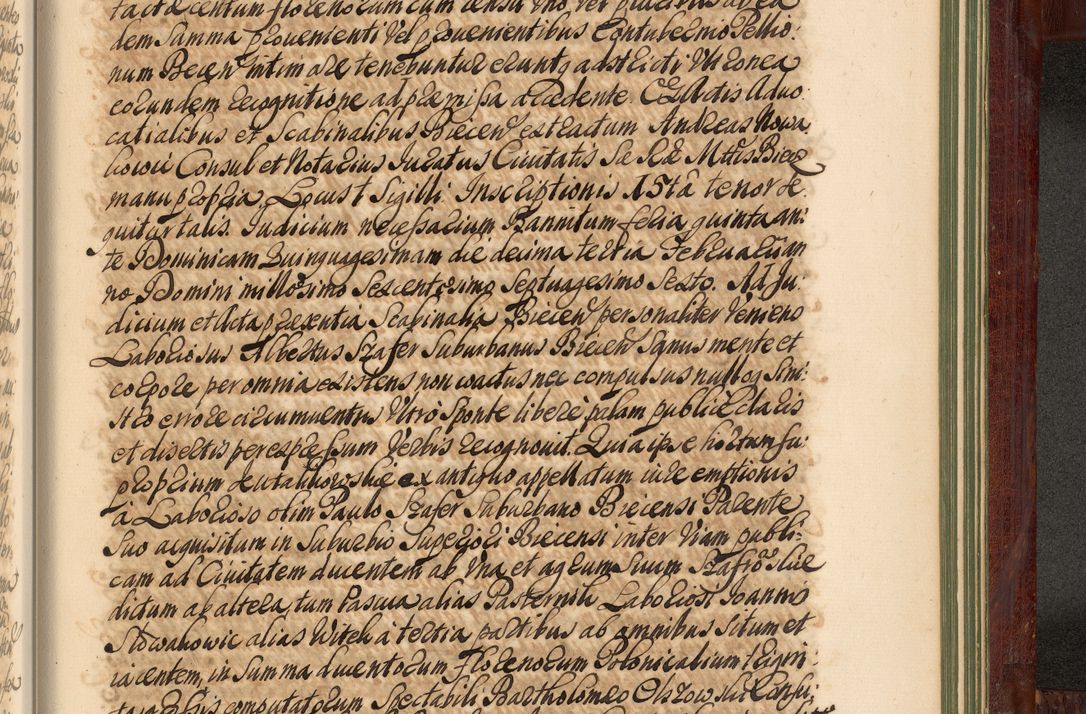 tact & centum florenorum cum censu uno, vel pluribus ab ea
dem Summa provenienti vel provenientibus Contubernio Pellio:
num Biecen intimare tenebuntur eruntq adstricti Mironea
eorundem recognitione ad præmissa accedente. Ex Actis Advo
catialibus et Scabinalibus Biecen extractum Andreas Nowa
kowic Consul et Notarius Juratus Civitatis S Ræ Mttis Biecz
manu propria, Locus + Sigilli. Inscriptionis A 5tâ tenor se
quitur talis. Judicium necessarium Bannitum feria quinta an:
te Dominicam Quinquagesimam die decima tertia Februarii an
no Domini millesimo sexcentesimo septuagesimo sexto. Ad Ju:
dicium et Acta præsentia Scabinalia Biecen personaliter veniens
Laboriosus Albertus Szafer Suburbanus Biecen Sanus mente et
corpore per omnia existens non coactus nec compulsus nulloq Sini:
stro errore circumventus Ultrò sponte liberè palam publicè claris
et disertis per expressum Verbis recognovit. Quia ipse hortum su:
proprium Kutalkowskie ex antiquo appellatum iure emptionis
à Laborioso olim Paulo Szafer Suburbano Biecensi Parente
suo acquisitum in Suburbio Superiori Biecensi inter Viam publi:
cam ad Civitatem ducentem ab Una et agrum Suum Szafrowskie
dictum ab altera, tum Pascua alias Pasternik Laboriosi Joannis
Slowakowic alias Witek à tertia partibus ab omnibus Situm et
iacentem, in Summa ducentorum Florenorum Polonicalium trigin:
computatorum Spectabili Bartholomeo Olszowski Consu: